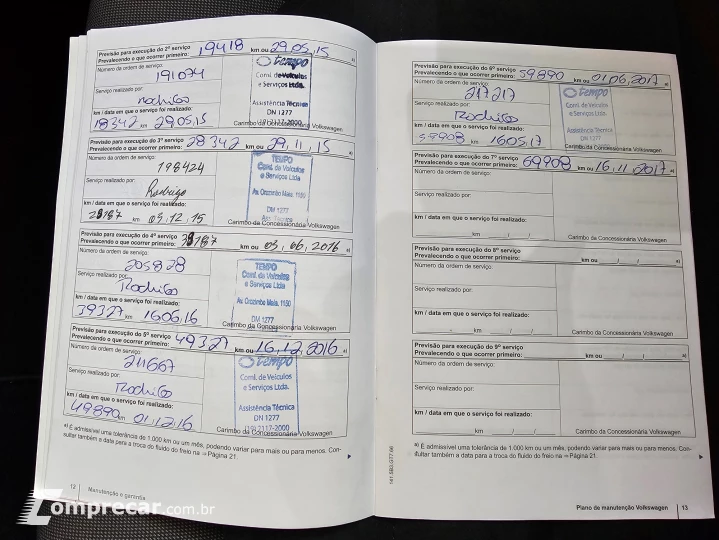 Previsão para execução do 2º serviço
Prevalecendo o que ocorrer primeiro: 19418 km ou 29.05.15 a)
Número da ordem de serviço:
191074
Serviço realizado por:
Rodrigo
km / data em que o serviço foi realizado:
18342 km 29.05.15
tempo
Coml. de Veículos
e Serviços Ltda.
Assistência Técnica
DN 1277
(19) 2117-2000
Carimbo da Concessionária Volkswagen
Previsão para execução do 3º serviço
Prevalecendo o que ocorrer primeiro: 28342 km ou 29.11.15 a)
Número da ordem de serviço:
198424
Serviço realizado por:
Rodrigo
km / data em que o serviço foi realizado:
29187 km 09.12.15
TEMPO
Coml. de Veículos
e Serviços Ltda
Av. Orozimbo Maia, 1150
DN 1277
Ass. Técnica
Carimbo da Concessionária Volkswagen
Previsão para execução do 4º serviço
Prevalecendo o que ocorrer primeiro: 39187 km ou 09.06.2016 a)
Número da ordem de serviço:
205828
Serviço realizado por:
Rodrigo
km / data em que o serviço foi realizado:
39327 km 16.06.16
TEMPO
Coml. de Veículos
e Serviços Ltda
Av. Orozimbo Maia, 1150
DN 1277
Carimbo da Concessionária Volkswagen
Previsão para execução do 5º serviço
Prevalecendo o que ocorrer primeiro: 49327 km ou 16.12.2016 a)
Número da ordem de serviço:
211667
Serviço realizado por:
Rodrigo
km / data em que o serviço foi realizado:
49890 km 01.12.16
tempo
Coml. de Veículos
e Serviços Ltda.
Assistência Técnica
DN 1277
(19) 2117-2000
Carimbo da Concessionária Volkswagen
a) É admissível uma tolerância de 1.000 km ou um mês, podendo variar para mais ou para menos. Con-
sultar também a data para a troca do fluido do freio na ⇒ Página 21.
12 Manutenção e garantia
Previsão para execução do 6º serviço
Prevalecendo o que ocorrer primeiro: 59890 km ou 01.06.2017 a)
Número da ordem de serviço:
217217
Serviço realizado por:
Rodrigo
km / data em que o serviço foi realizado:
59908 km 16.05.17
tempo
Coml. de Veículos
e Serviços Ltda.
Assistência Técnica
DN 1277
Carimbo da Concessionária Volkswagen
Previsão para execução do 7º serviço
Prevalecendo o que ocorrer primeiro: 69908 km ou 16.11.2017 a)
Número da ordem de serviço:
Serviço realizado por:
km / data em que o serviço foi realizado:
km / /
Carimbo da Concessionária Volkswagen
Previsão para execução do 8º serviço
Prevalecendo o que ocorrer primeiro: km ou / / a)
Número da ordem de serviço:
Serviço realizado por:
km / data em que o serviço foi realizado:
km / /
Carimbo da Concessionária Volkswagen
Previsão para execução do 9º serviço
Prevalecendo o que ocorrer primeiro: km ou / / a)
Número da ordem de serviço:
Serviço realizado por:
km / data em que o serviço foi realizado:
km / /
Carimbo da Concessionária Volkswagen
a) É admissível uma tolerância de 1.000 km ou um mês, podendo variar para mais ou para menos. Con-
sultar também a data para a troca do fluido do freio na ⇒ Página 21.
Plano de manutenção Volkswagen 13
Comprecar.com.br